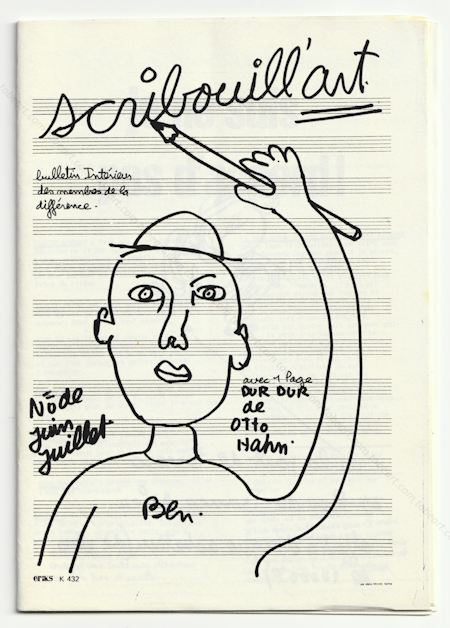 scribouill'art.
bulletin Intérieur
des membres de la
différence.
avec 1 Page
DUR DUR
de
Otto
Hahn.
N° de
juin
juillet.
Ben.
eriks K 432